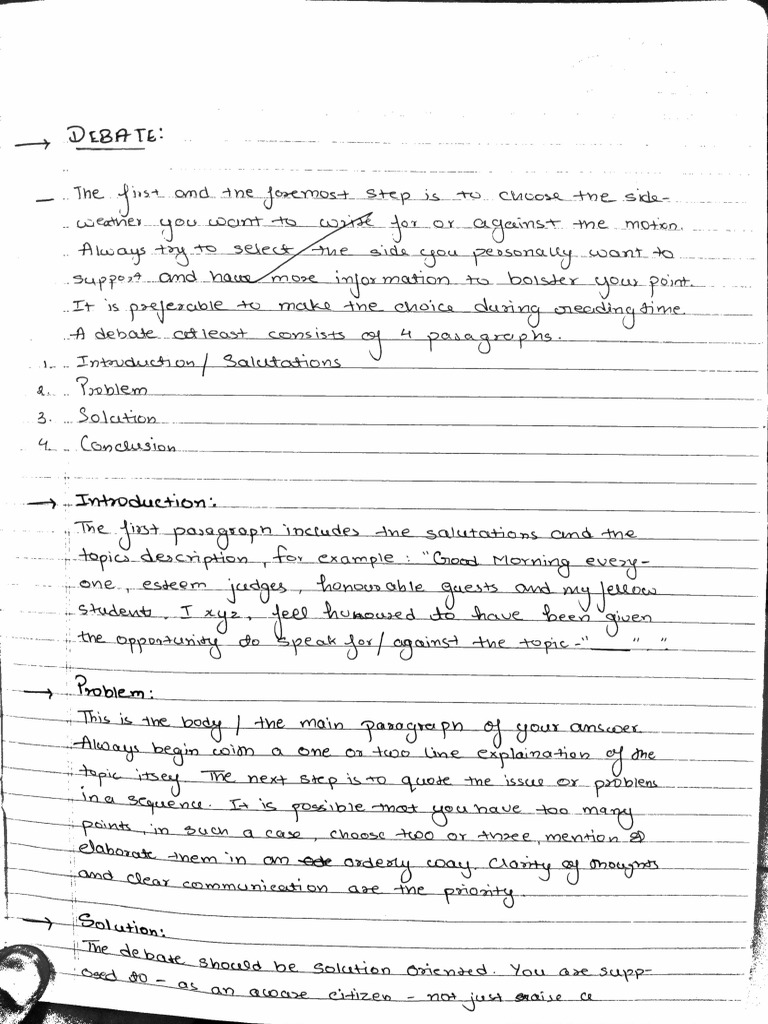 → DEBATE:
– The first and the foremost step is to choose the side-
weather you want to write for or against the motion.
Always try to select the side you personally want to
support and have more information to bolster your point.
It is preferable to make the choice during reading time.
A debate atleast consists of 4 paragraphs.
1. Introduction / Salutations
2. Problem
3. Solution
4. Conclusion
→ Introduction:
The first paragraph includes the salutations and the
topics description, for example : "Good Morning every-
one, esteem judges, honourable guests and my fellow
students. I xyz, feel humoured to have been given
the opportunity to speak for/against the topic-"____"."
→ Problem:
This is the body / the main paragraph of your answer.
Always begin with a one or two line explaination of the
topic itself. The next step is to quote the issue or problems
in a sequence. It is possible that you have too many
points, in such a case, choose two or three, mention &
elaborate them in an orderly way. Clarity of thoughts
and clear communication are the priority.
→ Solution:
The debate should be solution oriented. You are supp-
osed to - as an aware citizen - not just raise a